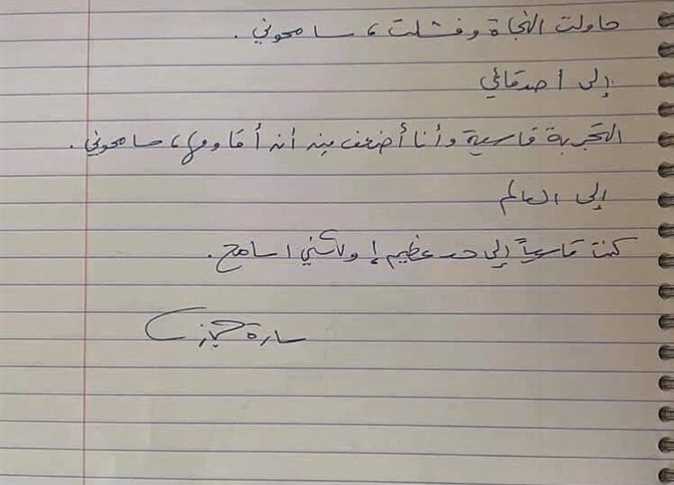 حاولت النجاة وفشلت، سامحوني.
إلى أصدقائي
التجربة قاسية وأنا أضعف من أن أقاومها، سامحوني.
إلى العالم
كنت قاسياً إلى حد عظيم! ولكني اسامح.
سارة حجازي